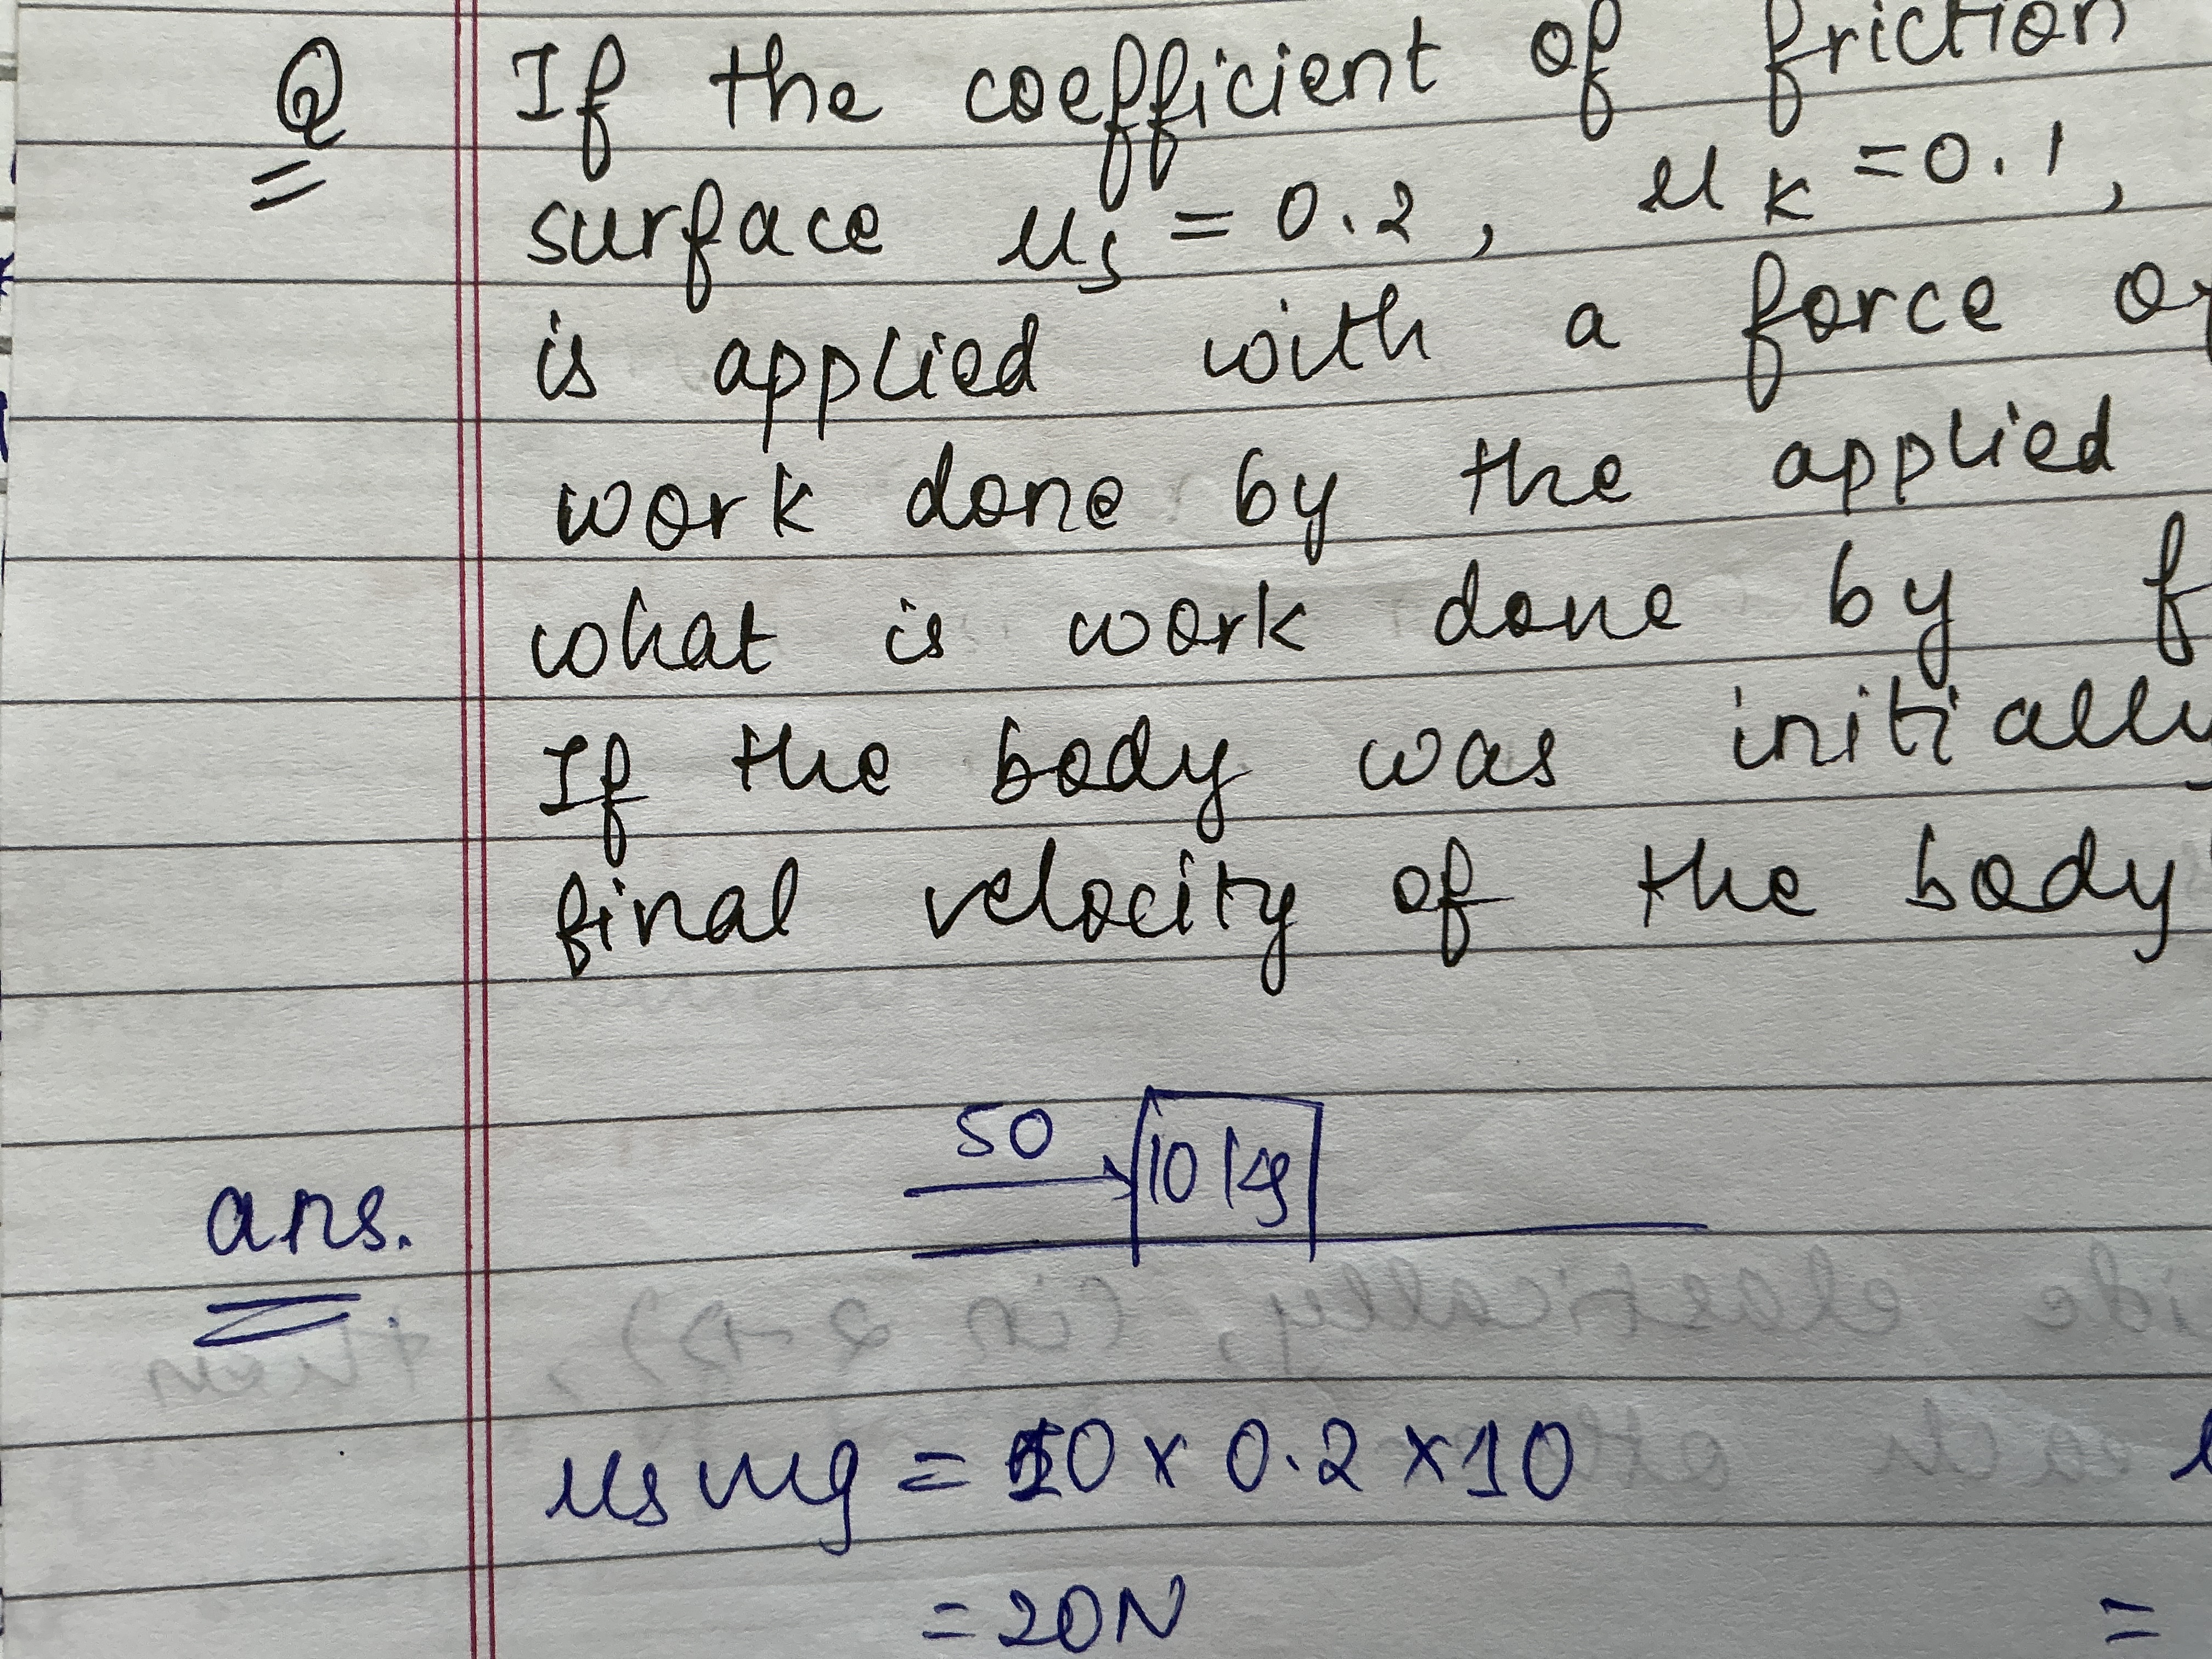 Q If the coefficient of friction
surface μs = 0.2, μK = 0.1,
is applied with a force
work done by the applied
what is work done by
If the body was initially
final velocity of the body
50
10 kg
ans.
μs mg = 10 x 0.2 x 10
= 20N
=